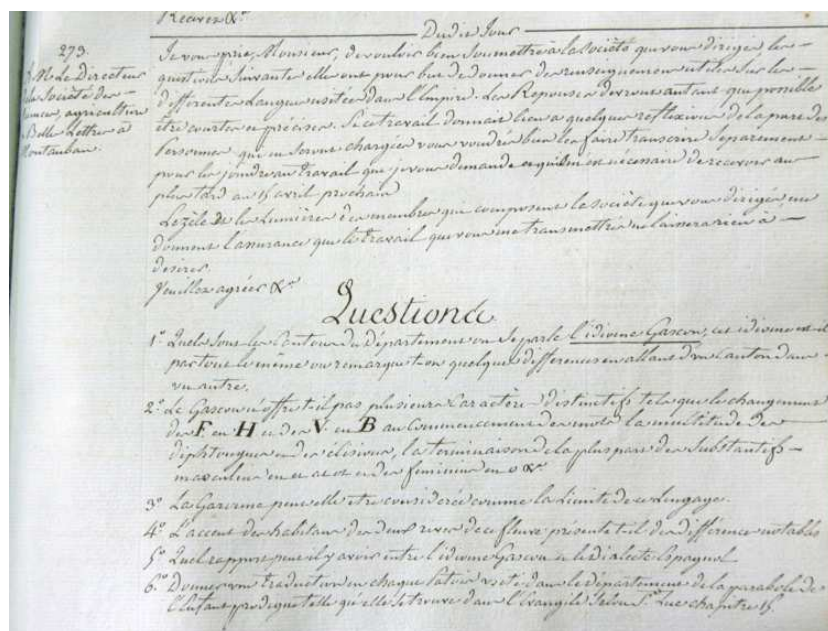 Recevez &a
Dudit Jour
273.
M. Le Directeur
de la Société des
sciences, agriculture
& Belles Lettres à
Montauban.
Je vous prie, Monsieur, de vouloir bien soumettre à la société que vous dirigez, les
questions suivantes elles ont pour but de donner des renseignemens utiles sur les
differentes Langues usitées dans l'Empire. Les Reponses devront autant que possible
être courtes et précises. Si ce travail donnait lieu a quelques reflexions de la part des
Personnes qui en seront chargées vous voudrés bien les faire transcrire separement
pour les joindre au travail que je vous demande et qu'il m'est nécessaire de recevoir au
plus tard au 15 avril prochain
Le zèle & les Lumières des membres qui composent la société que vous dirigés me
donnent l'assurance que le travail que vous me transmettrés ne laissera rien à
desirer.
Veuillez agréer &a
Questions
1° Quels sont les Cantons du Département où se parle l'idiome Gascon, cet idiome est-il
partout le même ou remarque-t-on quelques differences en allant d'un Canton dans
un autre.
2° Le Gascon n'offre-t-il pas plusieurs Caractères distinctifs tels que le changement
des F en H et des V en B au Commencement des mots la multitude des
diphtongues et des élisions, la terminaison de la plus part des substantifs
masculins en et at ot et des feminins en o &a
3° La Garonne peut elle être considerée comme la Limite de ce Langage.
4° L'accent des habitans des deux rives de ce fleuve présente t-il des différences notables
5° Quel rapport peut il y avoir entre l'idiome Gascon & le dialecte Espagnol
6° Donner une traduction en chaque Patois usité dans le département de la parabole de
l'Enfant prodigue telle qu'elle se trouve dans l'Evangile selon St. Luc chapitre 15.